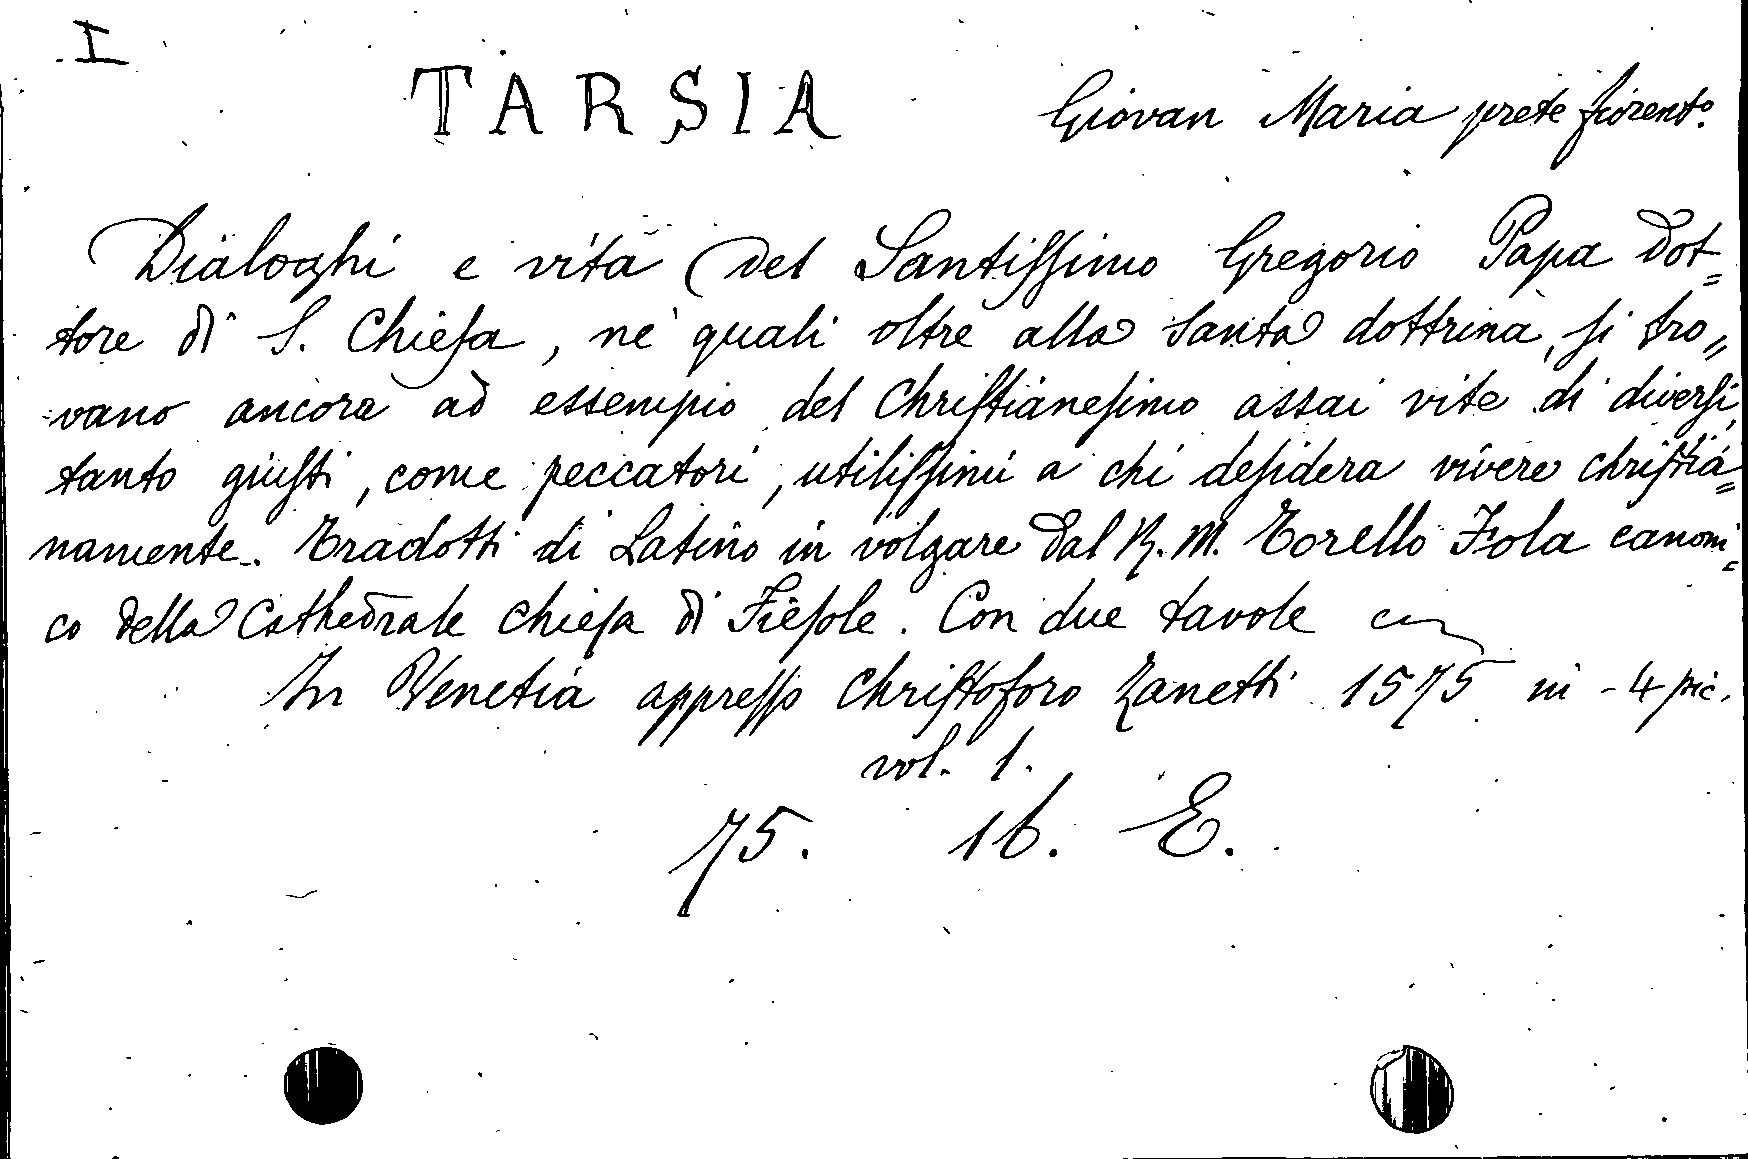 I
TARSIA Giovan Maria prete fiorent.º
Dialoghi e vita del Santiſſimo Gregorio Papa dot=
tore di S. Chieſa, ne quali oltre alla santa dottrina, ſi tro„
vano ancora ad essempio del Chriſtianeſimo assai vite di diverſi,
tanto giuſti, come peccatori, utiliſſimi a chi deſidera vivere chriſtia=
namente. Tradotti di Latino in volgare dal R. M. Torello Fola canoni=
co della Cathedrale chieſa di Fieſole. Con due tavole
In Venetia appreſſo Chriſtoforo Zanetti 1575 in-4 pic.
vol. 1.
75. 16. E.